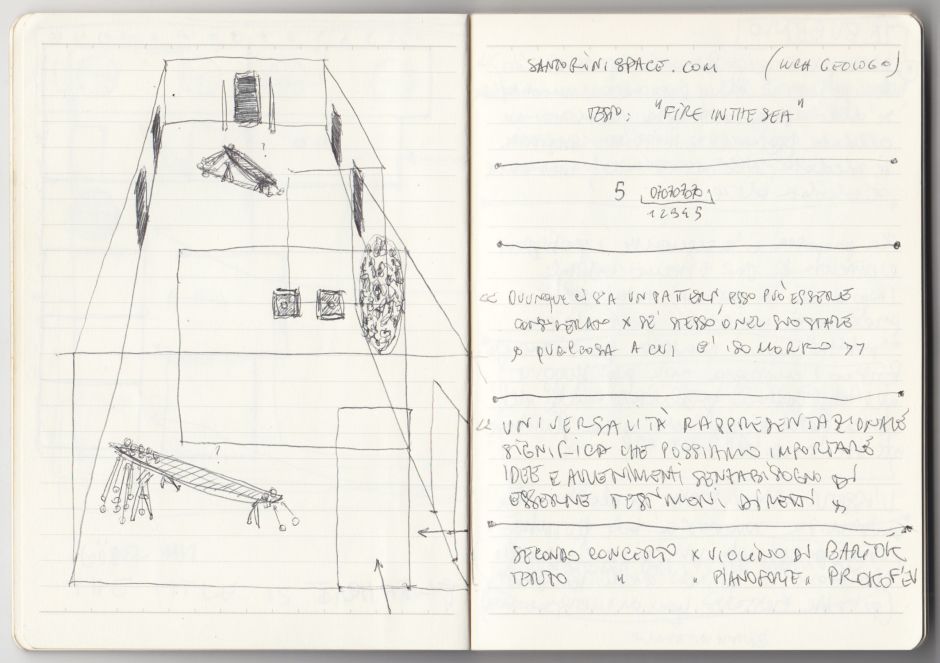 ?
?
SANTORINISPACE.COM (LUCA GEOLOGO)
TESTO: "FIRE IN THE SEA"
5 07070707
1 2 3 4 5
<< OVUNQUE CI SIA UN PATTERN, ESSO PUÒ ESSERE
CONSIDERATO X SÉ STESSO O NEL SUO STARE
X QUALCOSA A CUI È ISOMORFO >>
<< UNIVERSALITÀ RAPPRESENTAZIONALE
SIGNIFICA CHE POSSIAMO IMPORTARE
IDEE E AVVENIMENTI SENZA BISOGNO DI
ESSERNE TESTIMONI DIRETTI >>
SECONDO CONCERTO X VIOLINO DI BARTÓK
TERZO " " PIANOFORTE " PROKOF'EV